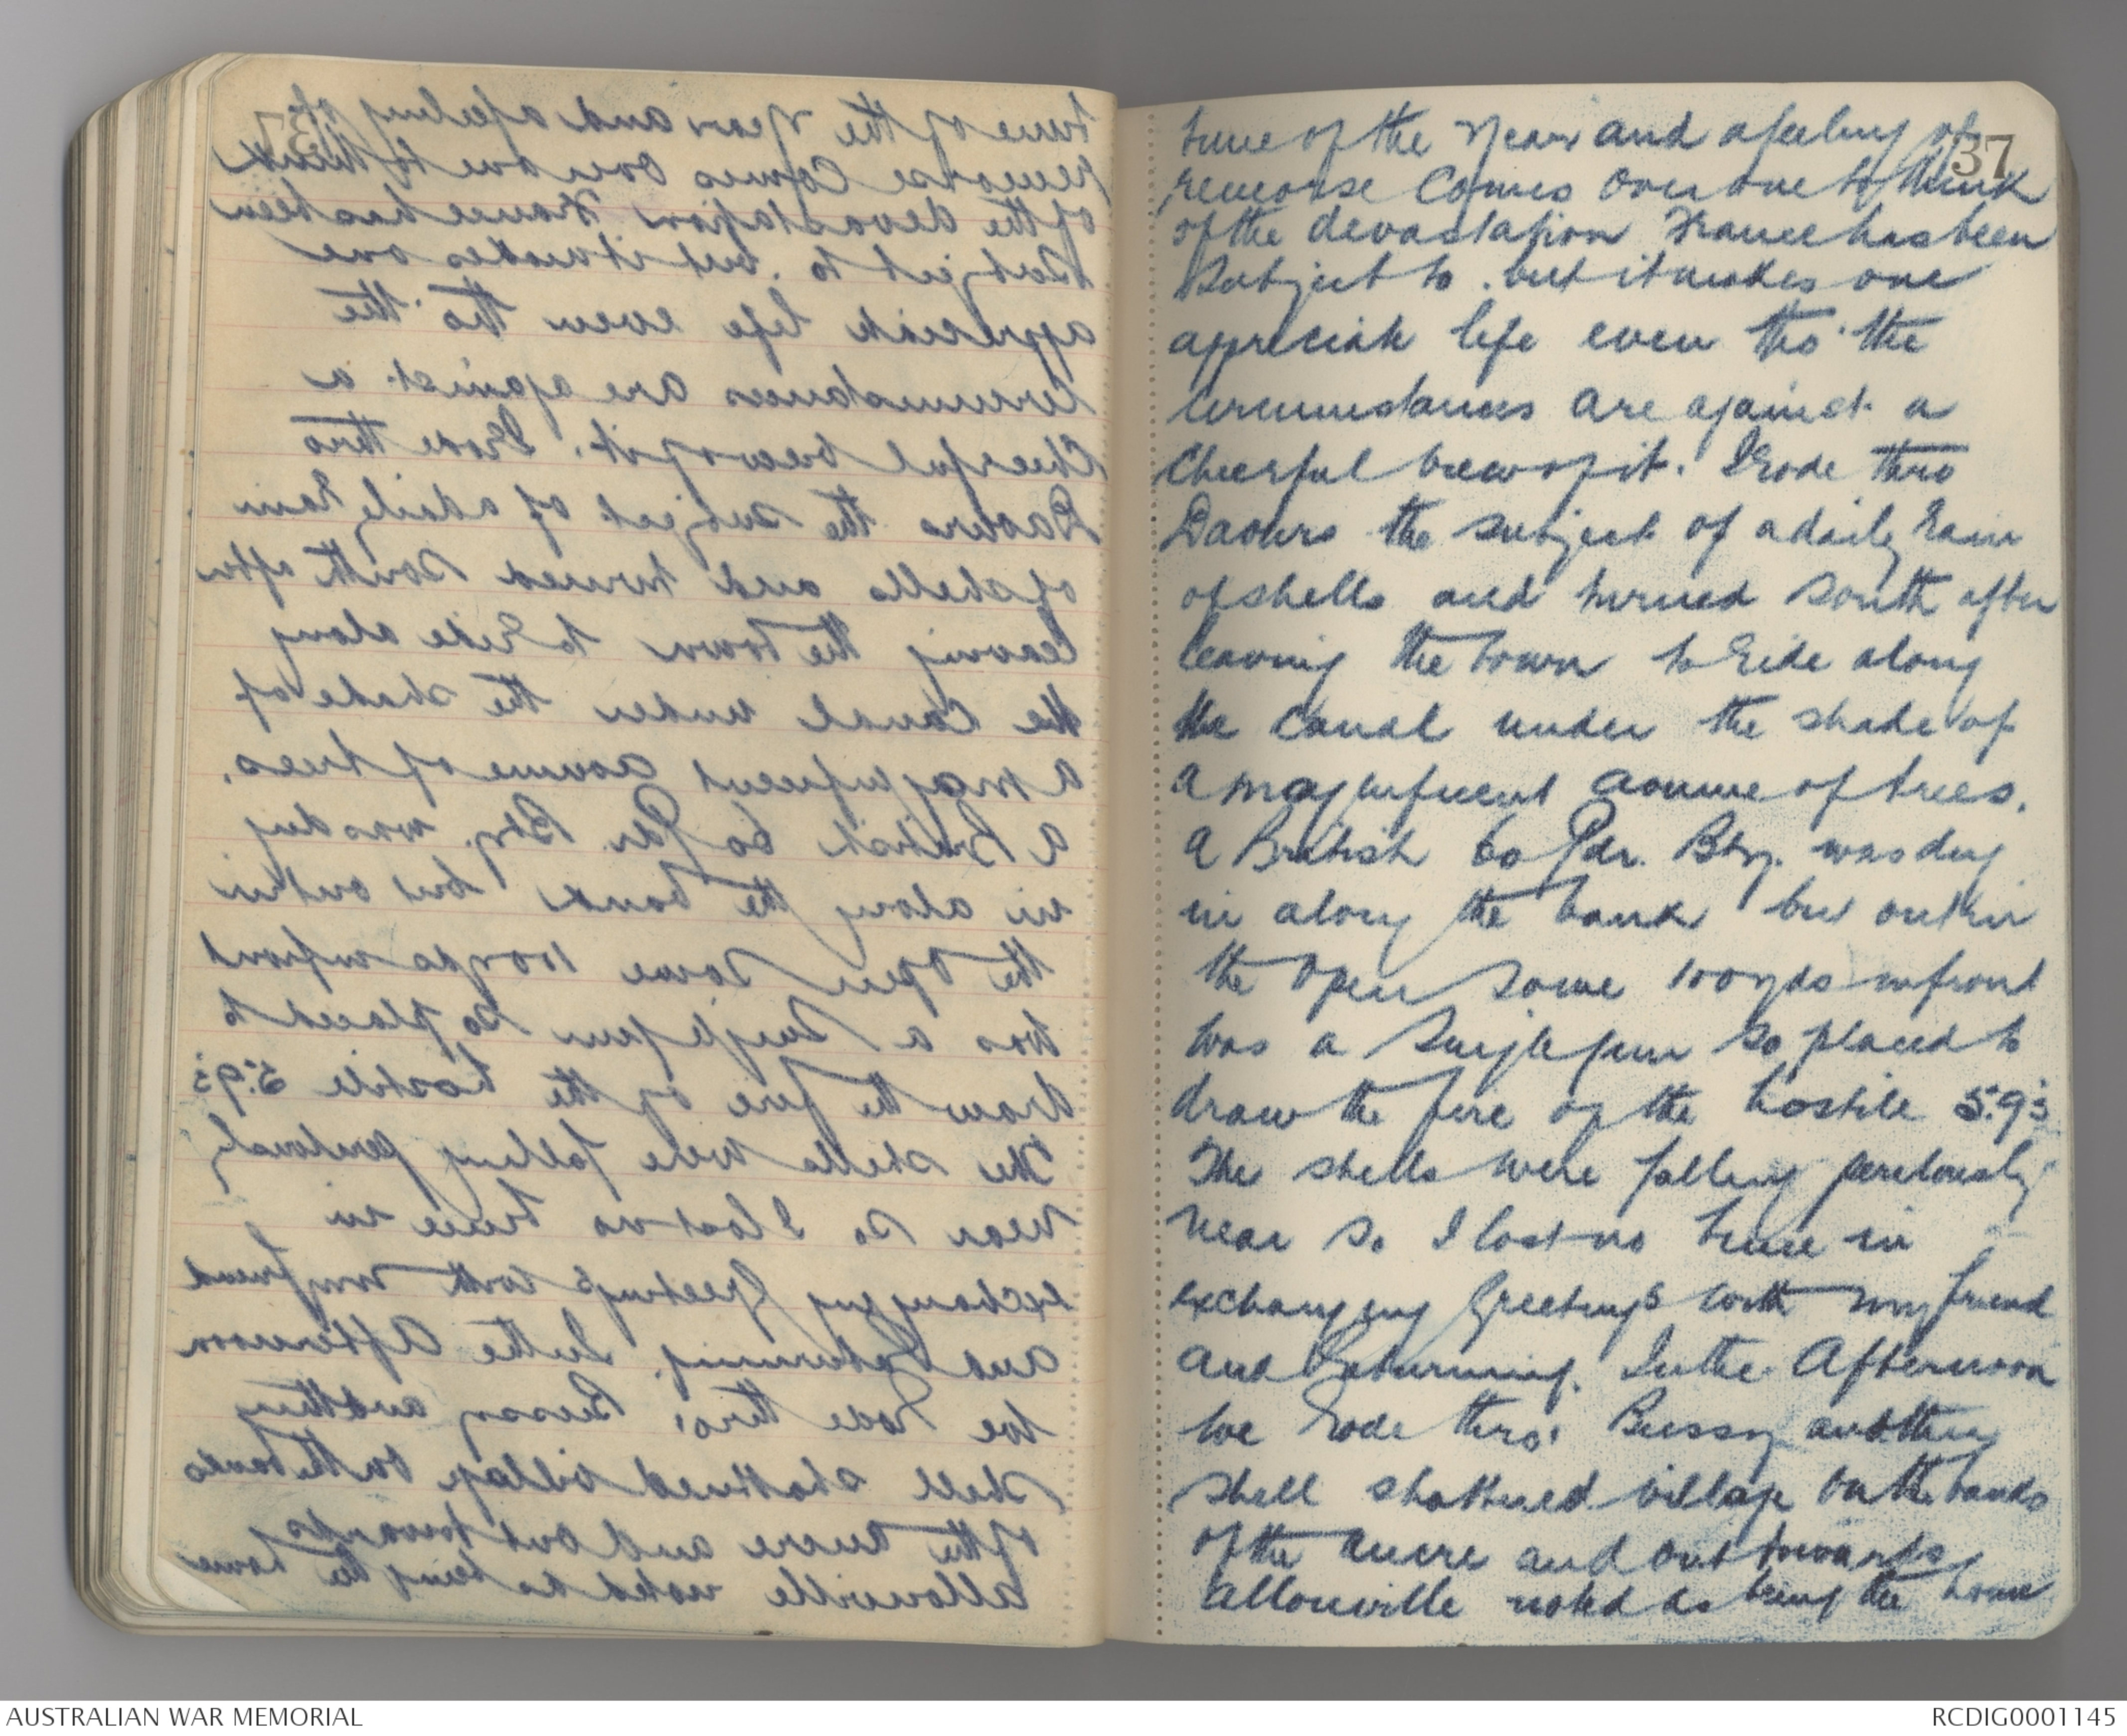 37
time of the Year and a feeling of
remorse Comes over one to think
of the devastation France has been
Subject to. but it makes one
appreciate life even tho' the
circumstances are against a
Cheerful view of it. I rode thro
Daours the subject of a daily rain
of shells and turned South after
leaving the town to ride along
the Canal under the shade of
a magnificent avenue of trees.
A British 60 Pdr. Bty. was dug
in along the bank but out in
the Open Some 100 yds infront
was a Single gun so placed to
draw the fire of the hostile 5.9's
The shells were falling perilously
near so I lost no time in
exchanging Greetings with my friend
and returning. In the Afternoon
we rode thro' Bussy another
shell shattered village on the banks
of the Ancre and out towards
Allonville noted as being the home
AUSTRALIAN WAR MEMORIAL
RCDIG0001145